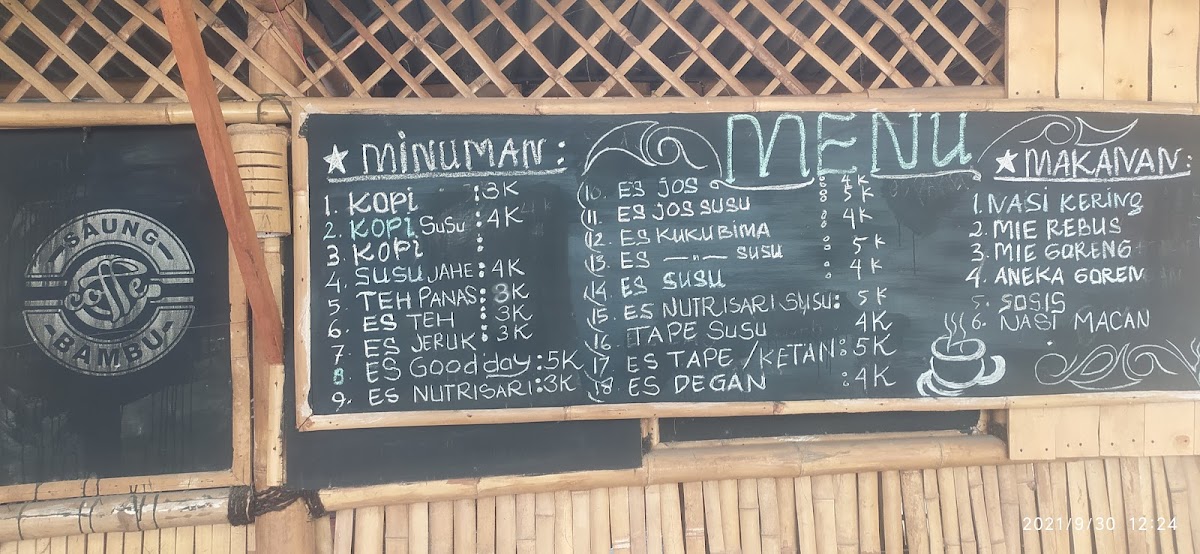 SAUNG
coffe
BAMBU
MENU
★ MINUMAN :
1. KOPI : 3K
2. KOPI SUSU : 4K
3. KOPI :
4. SUSU JAHE : 4K
5. TEH PANAS : 3K
6. ES TEH : 3K
7. ES JERUK : 3K
8. ES Good day : 5K
9. ES NUTRISARI : 3K
10. ES JOS : 4K
11. ES JOS SUSU : 5K
12. ES KUKUBIMA : 4K
13. ES —"— SUSU : 5K
14. ES SUSU : 4K
15. ES NUTRISARI SUSU : 5K
16. TAPE SUSU 4K
17. ES TAPE / KETAN : 5K
18. ES DEGAN : 4K
★ MAKANAN :
1. NASI KERING
2. MIE REBUS
3. MIE GORENG
4. ANEKA GOREN
5. SOSIS
6. NASI MACAN
2021/9/30 12:24